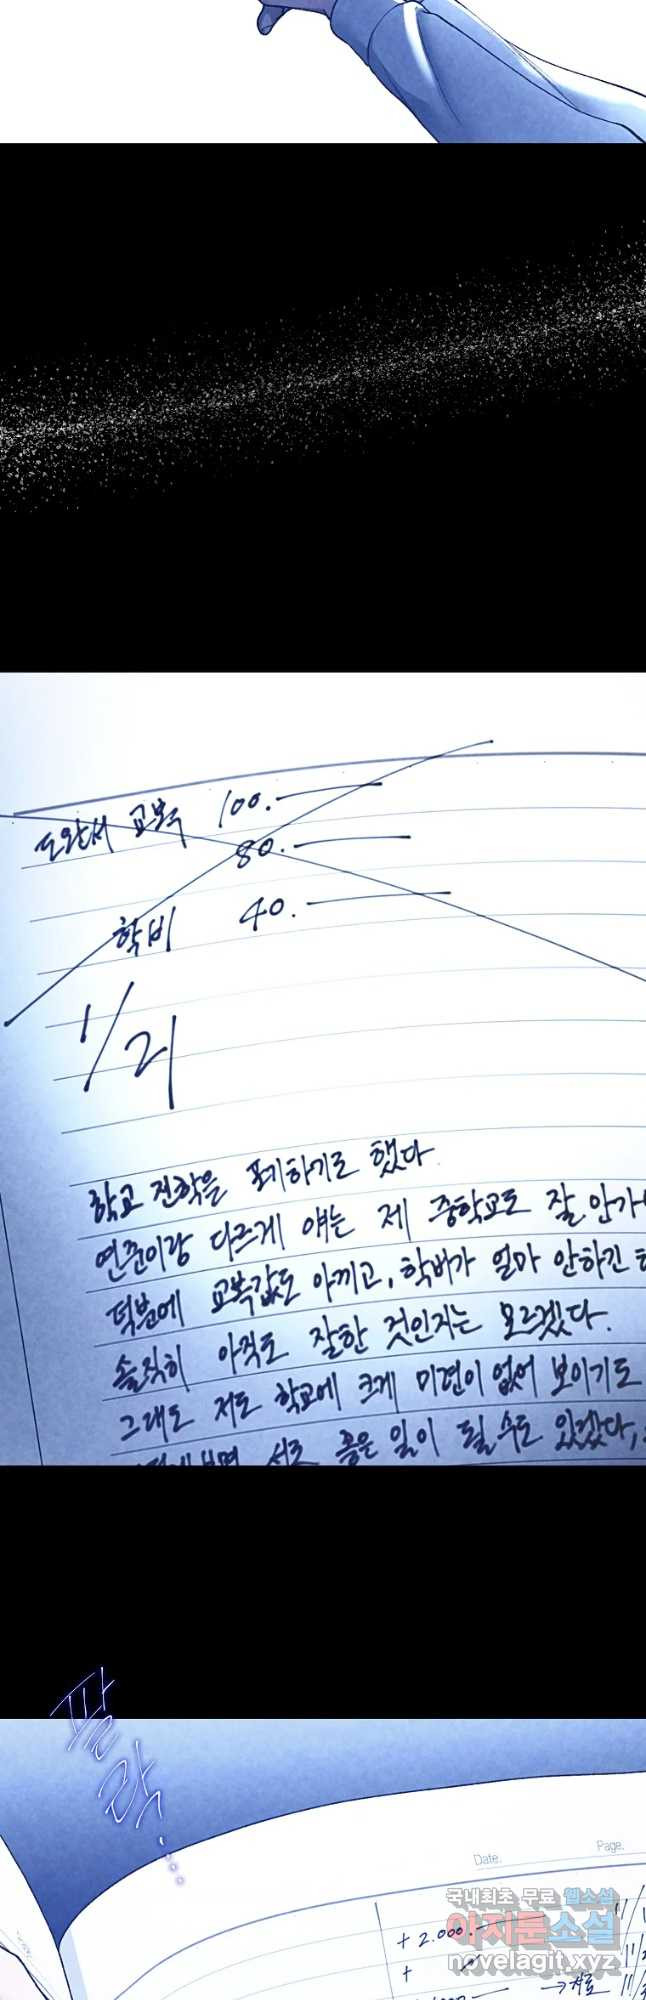 도완서 교복 100.
80.
학비 40.
1/21
학교 전학을 포기하기로 했다.
연준이랑 다르게 얘는 제 중학교도 잘 안가
덕분에 교복값도 아끼고, 학비가 얼마 안하긴 하
솔직히 아직도 잘한 것인지는 모르겠다.
그래도 저도 학교에 크게 미련이 없어 보이기도
어떻게 보면 서로 좋은 일이 될 수도 있겠다,
팔락
Date. Page.
+ 2.000.- 11/
+ 11/
→ 차로 11/
국내최초 무료 웹소설
아지툰소설
novelagit.xyz